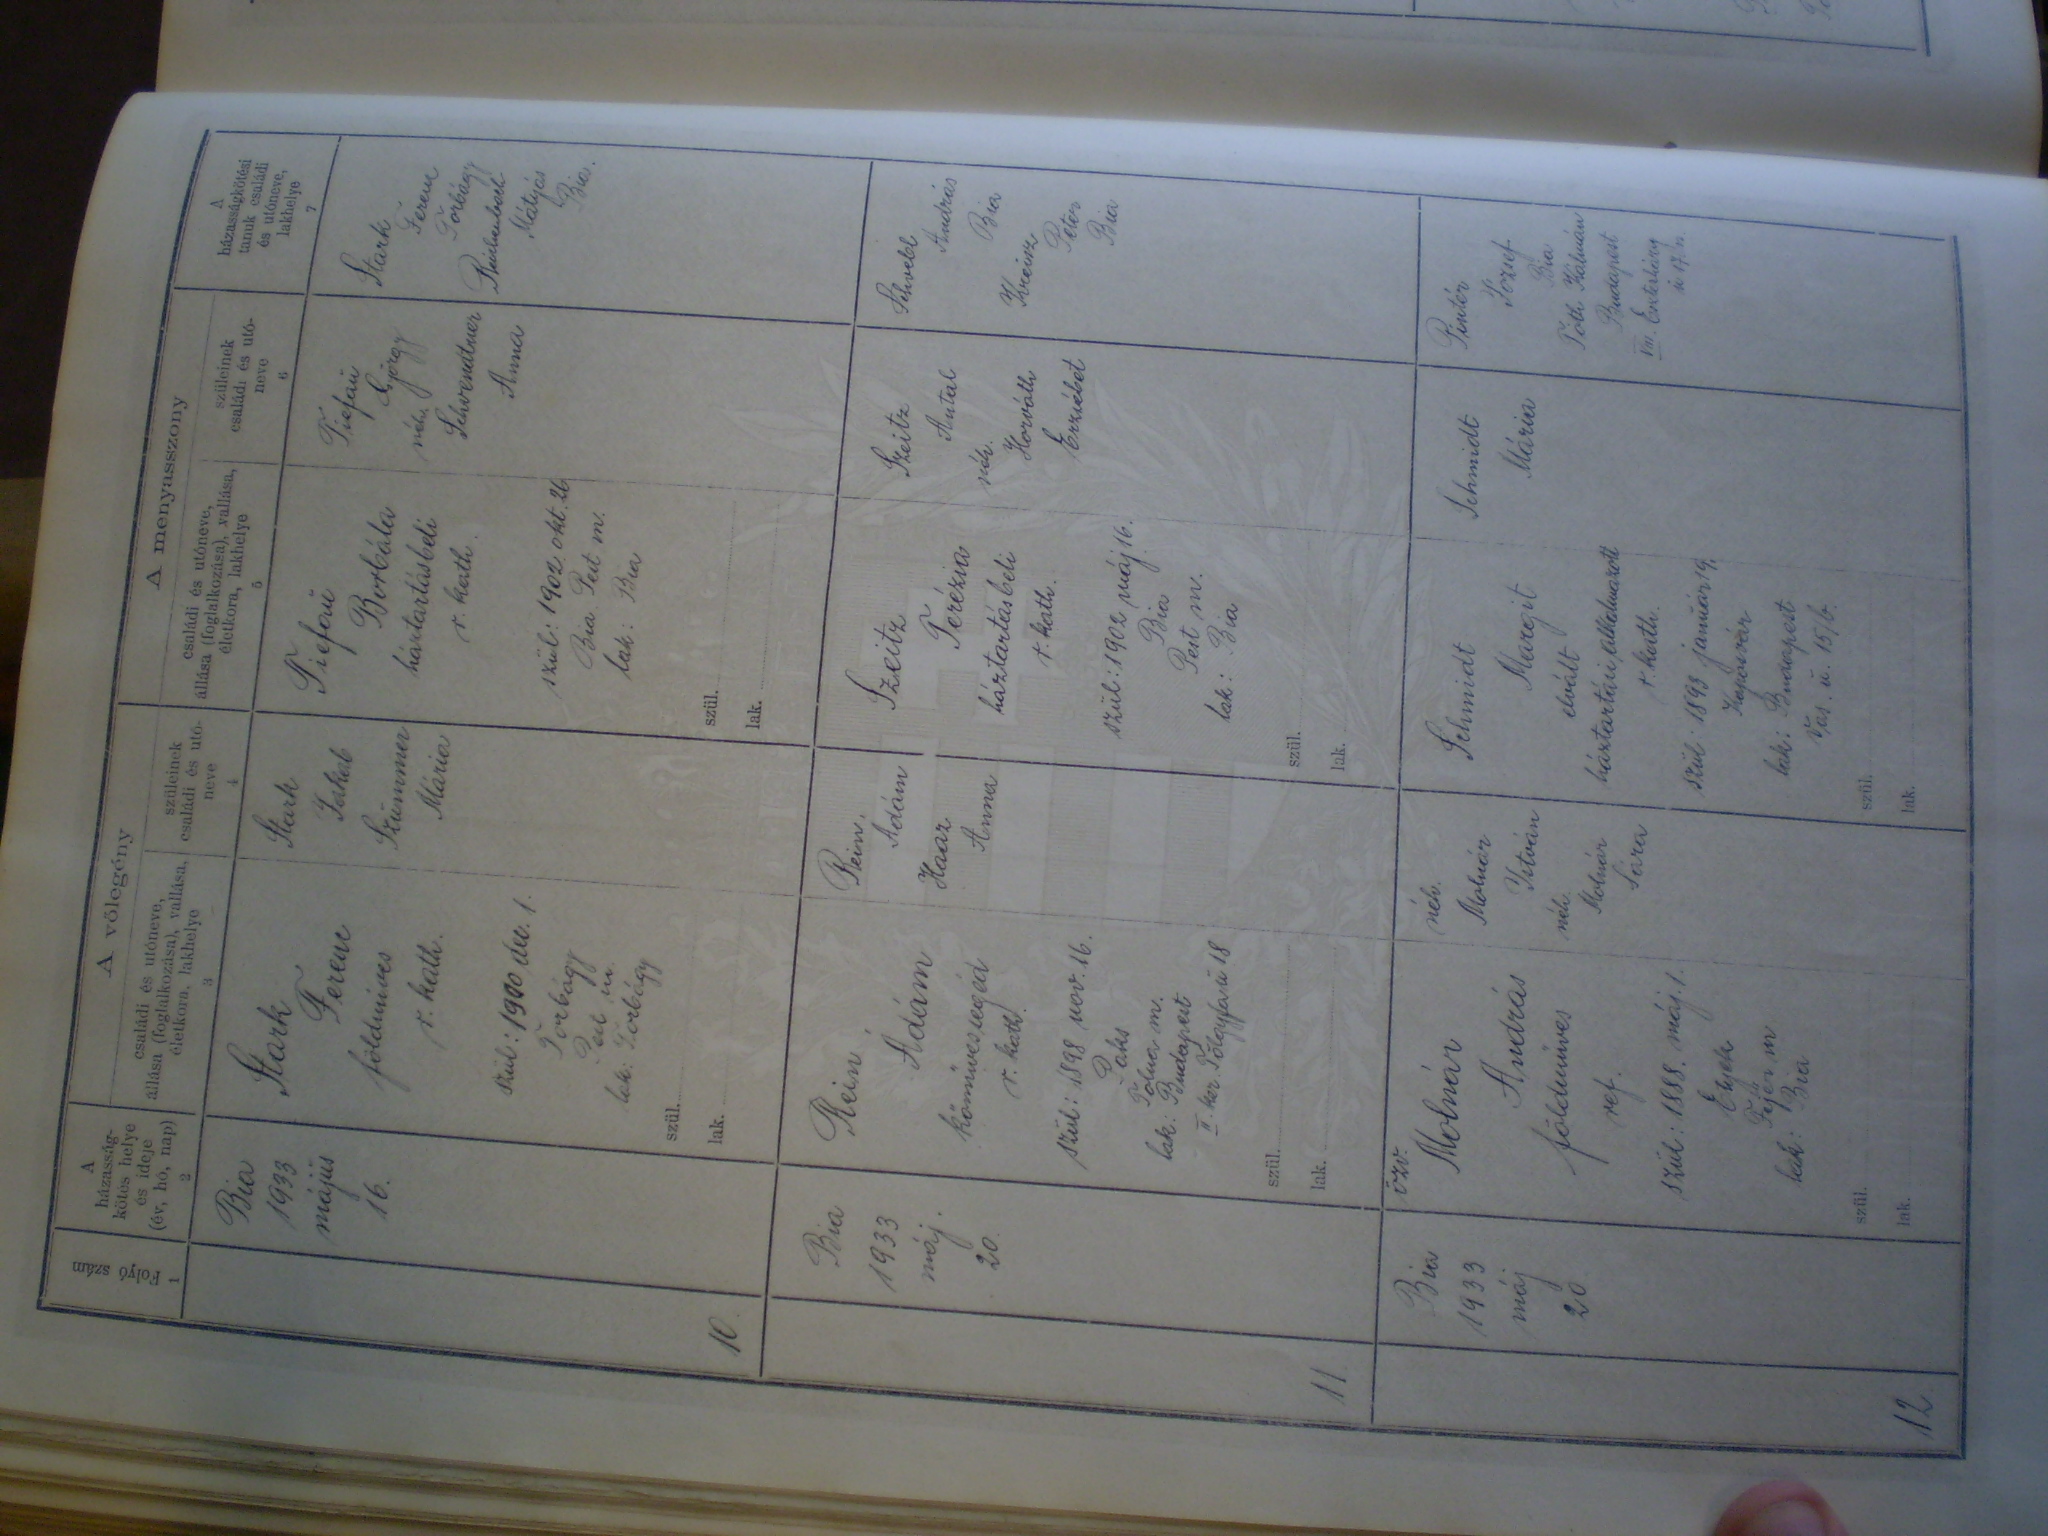 1
Folyó szám
A
házasság-
kötés helye
és ideje
(év, hó, nap)
2
A vőlegény
családi és utóneve,
állása (foglalkozása), vallása,
életkora, lakhelye
3
szüleinek
családi és utó-
neve
4
A menyasszony
családi és utóneve,
állása (foglalkozása), vallása,
életkora, lakhelye
5
szüleinek
családi és utó-
neve
6
A
házasságkötési
tanuk családi
és utóneve,
lakhelye
7
10.
Bia
1933
május
16.
Stark
Ferenc
földmíves
r. kath.
szül: 1900 dec. 1.
Torbágy
Pest m.
lak: Torbágy
szül.
lak.
Stark
Jakab
Szummer
Mária
Tiefau
Borbála
háztartásbeli
r. kath.
szül: 1902 okt. 26
Bia Pest m.
lak: Bia
szül.
lak.
Tiefau
György
néh.
Schvendtner
Anna
Stark
Ferenc
Torbágy
Mátyás
Bia.
11
Bia
1933
máj.
20.
Rein
Ádám
kőmüvessegéd
r. kath.
szül: 1898 nov. 16.
Paks
Tolna m.
lak: Budapest
II. ker Tölgyfa ú 18
szül.
lak.
Rein
Ádám
Haaz
Anna
Szeitz
Terézia
háztartásbeli
r. kath.
szül: 1902 máj 16.
Bia
Pest m.
lak: Bia
szül.
lak.
Szeitz
Antal
néh.
Horváth
Erzsébet
Schvebl
András
Bia
Péter
Bia
12
Bia
1933
máj
20
özv.
Molnár
András
földmüves
ref.
szül: 1888. máj 1.
Etyek
Fejér m
lak: Bia
szül.
lak.
néh.
Molnár
István
néh.
Molnár
Sára
Schmidt
Margit
elvált
háztartási alkalmazott
r. kath.
szül: 1893 január 19.
Kaposvár
lak: Budapest
Vas. ú. 15/b.
szül.
lak.
Schmidt
Mária
Pintér
József
Bia
Tóth Kálmán
Budapest
VIII.